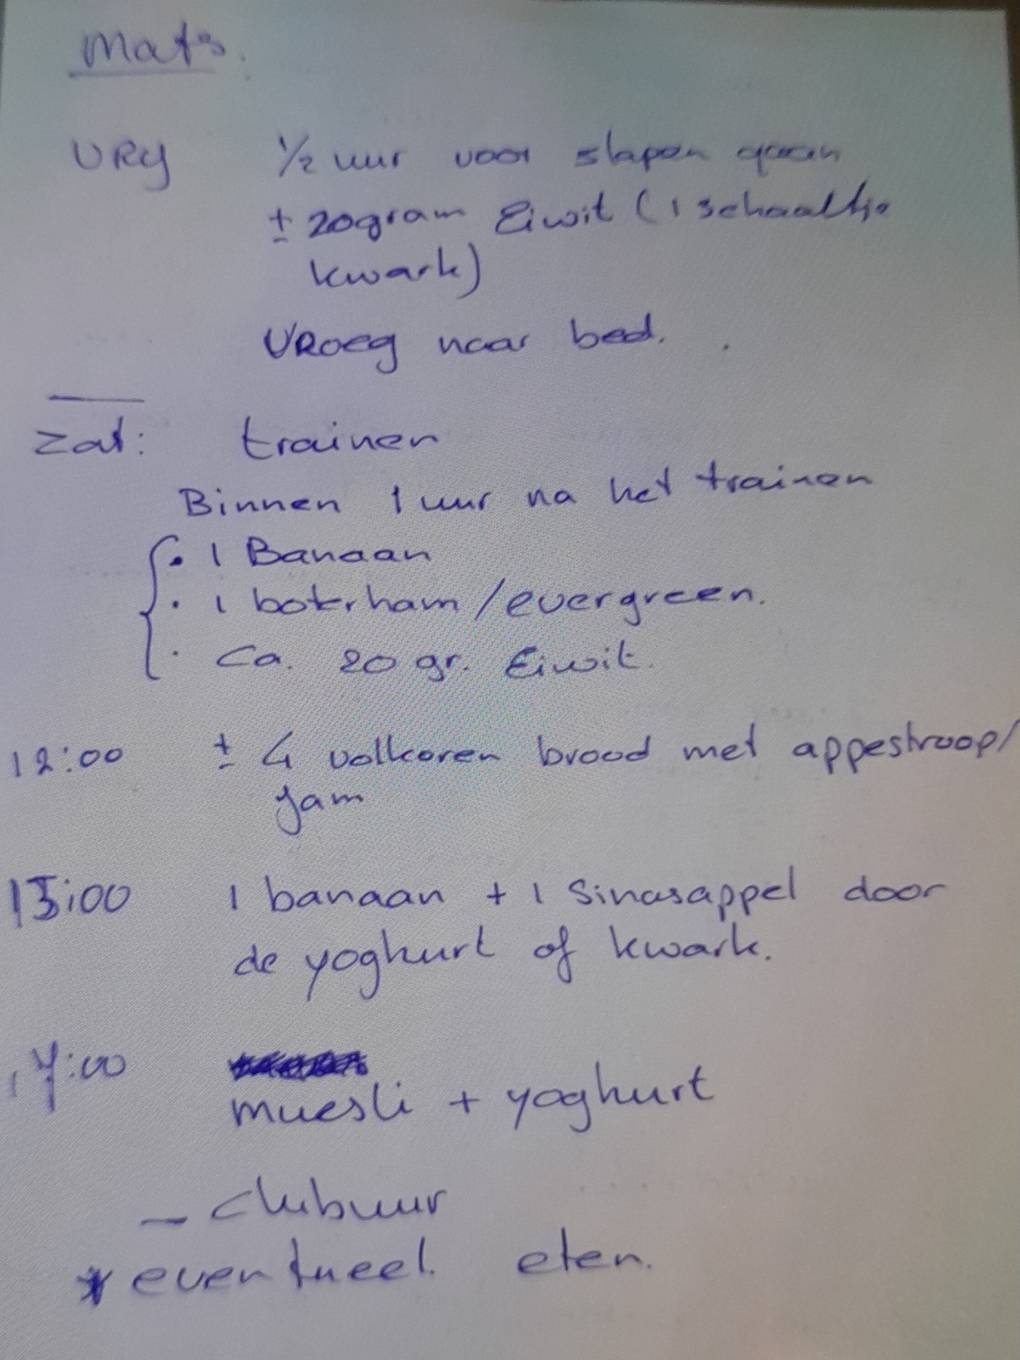 Mats.
VRY 1/2 uur voor slapen gaan
± 20gram Eiwit (1 schaaltje
kwark)
VRoeg naar bed.
Zat: trainen
Binnen 1 uur na het trainen
• 1 Banaan
• 1 boterham/evergreen.
• Ca. 20 gr. Eiwit.
12:00 ± 4 volkoren brood met appestroop/
jam
15:00 1 banaan + 1 Sinasappel door
de yoghurt of kwark.
17:00
muesli + yoghurt
- clubuur
* eventueel. eten.